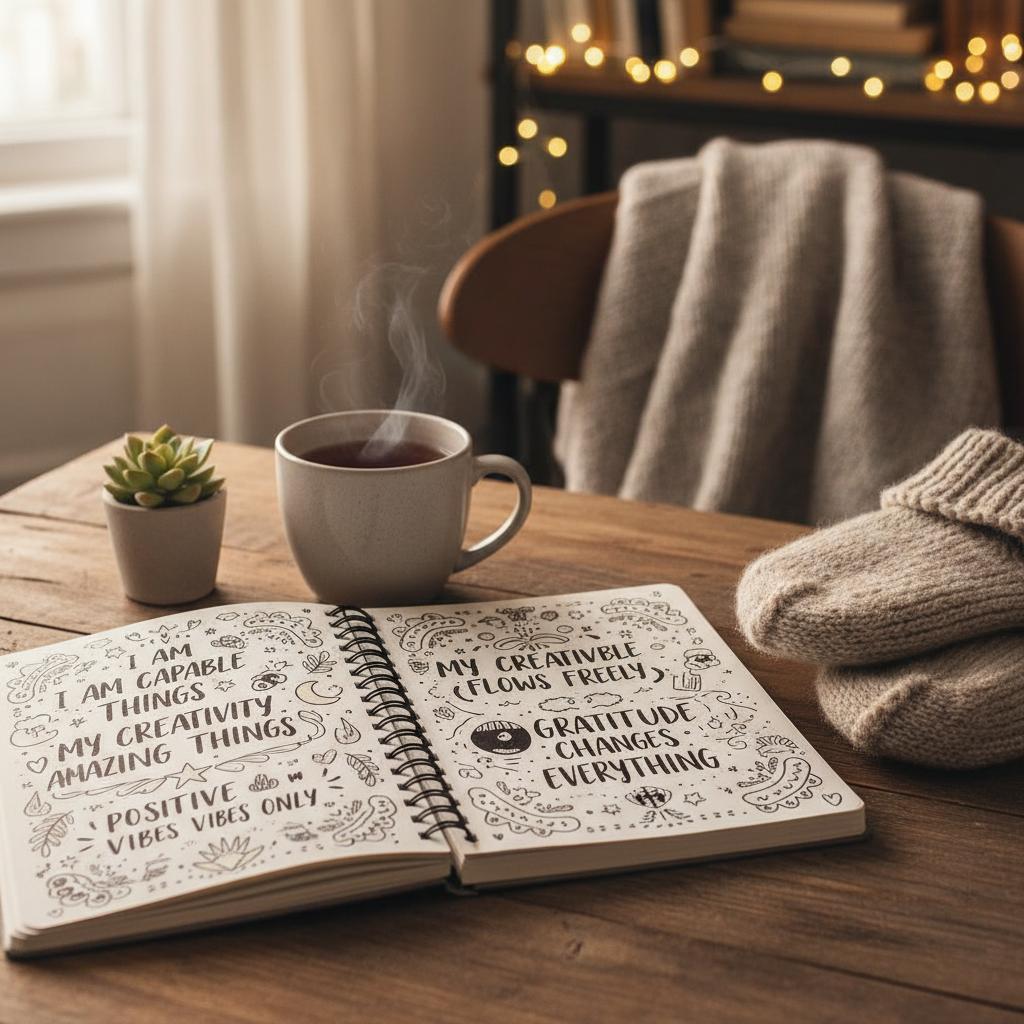 I AM
I AM CAPABLE
THINGS
MY CREATIVITY
AMAZING THINGS
POSITIVE
VIBES VIBES ONLY
MY CREATIVBLE
(FLOWS FREELY)
GRATITUDE
CHANGES
EVERYTHING